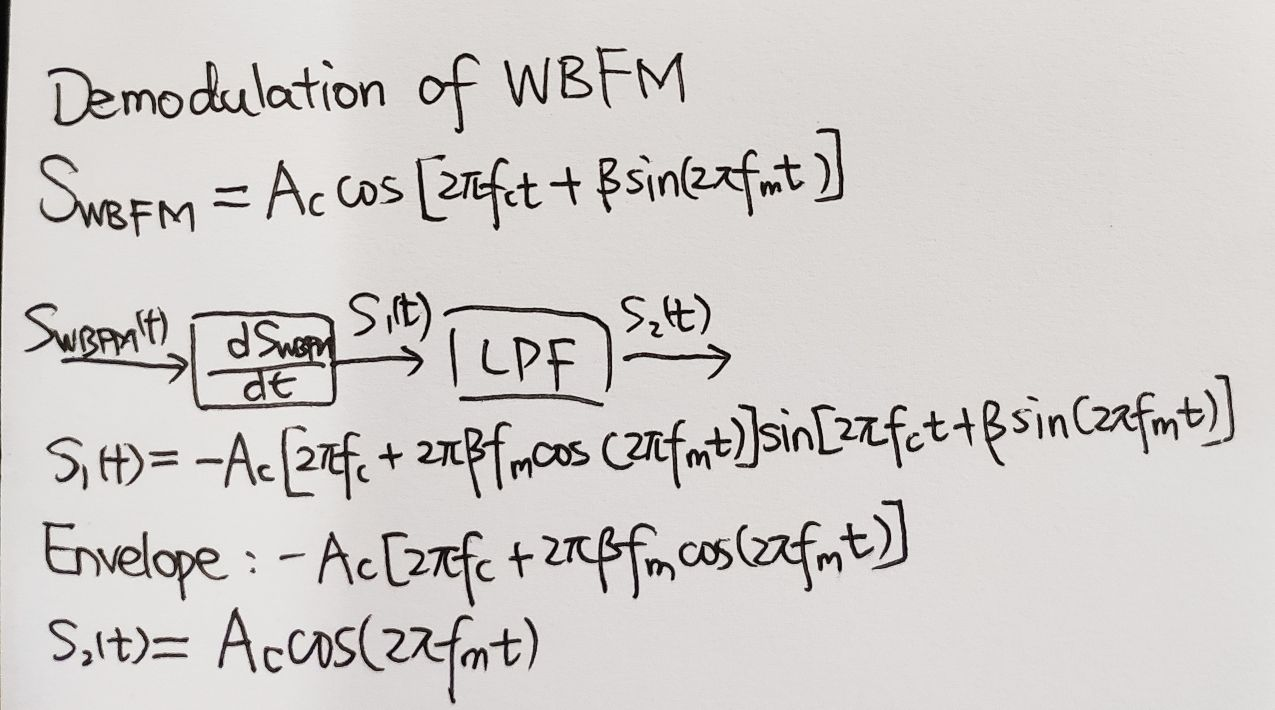 Demodulation of WBFM
S_WBFM = A_c cos [2πf_ct + β sin(2πf_mt)]
S_WBFM(t) dS_WBFM/dt S_1(t) LPF S_2(t)
S_1(t) = -A_c[2πf_c + 2πβf_m cos (2πf_mt)]sin[2πf_ct + β sin(2πf_mt)]
Envelope : -A_c[2πf_c + 2πβf_m cos(2πf_mt)]
S_2(t) = A_c cos(2πf_mt)